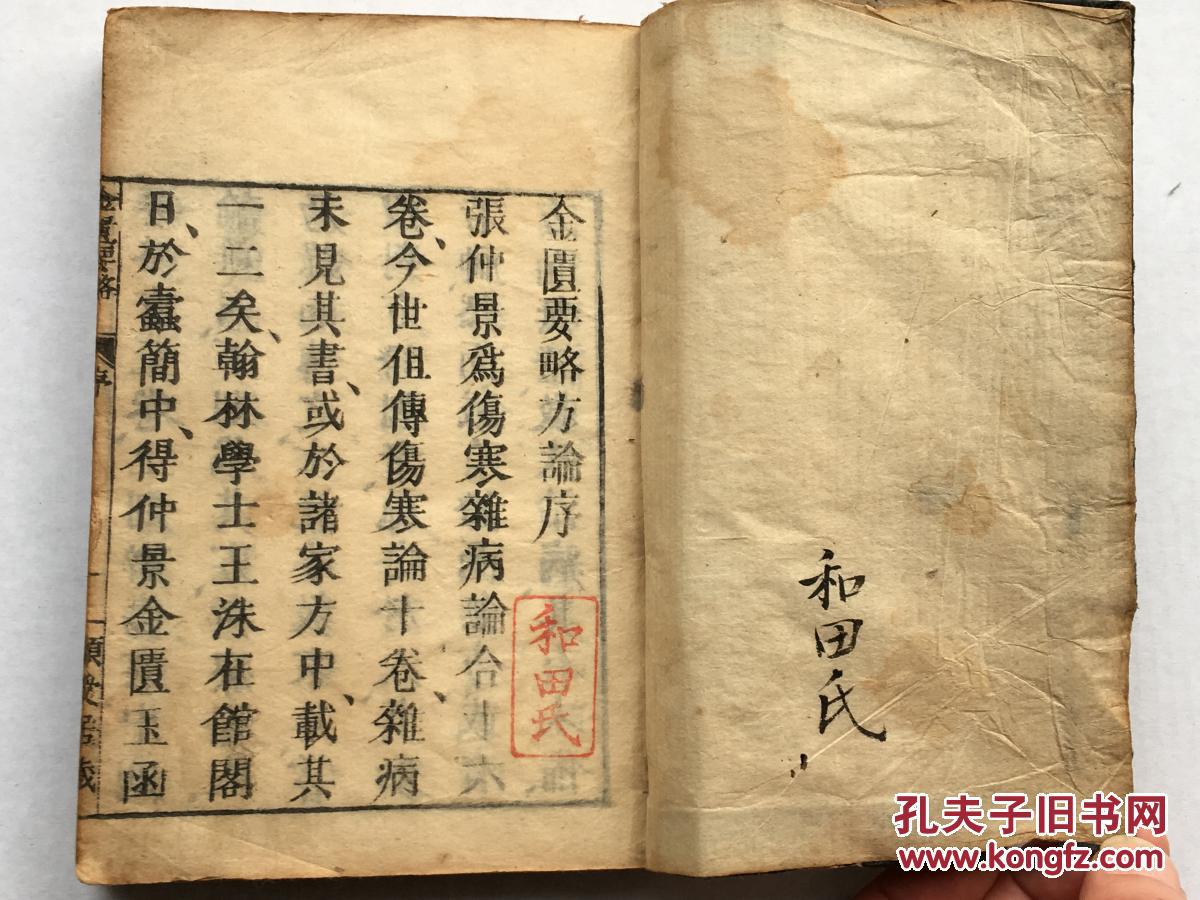 和田氏
金匱要略方論序
張仲景爲傷寒雜病論合十六
卷、今世但傳傷寒論十卷、雜病
未見其書、或於諸家方中、載其
一二矣、翰林學士王洙在館閣
日、於蠹簡中、得仲景金匱玉函
和田氏
金匱要略
序
一
孔夫子旧书网
www.kongfz.com